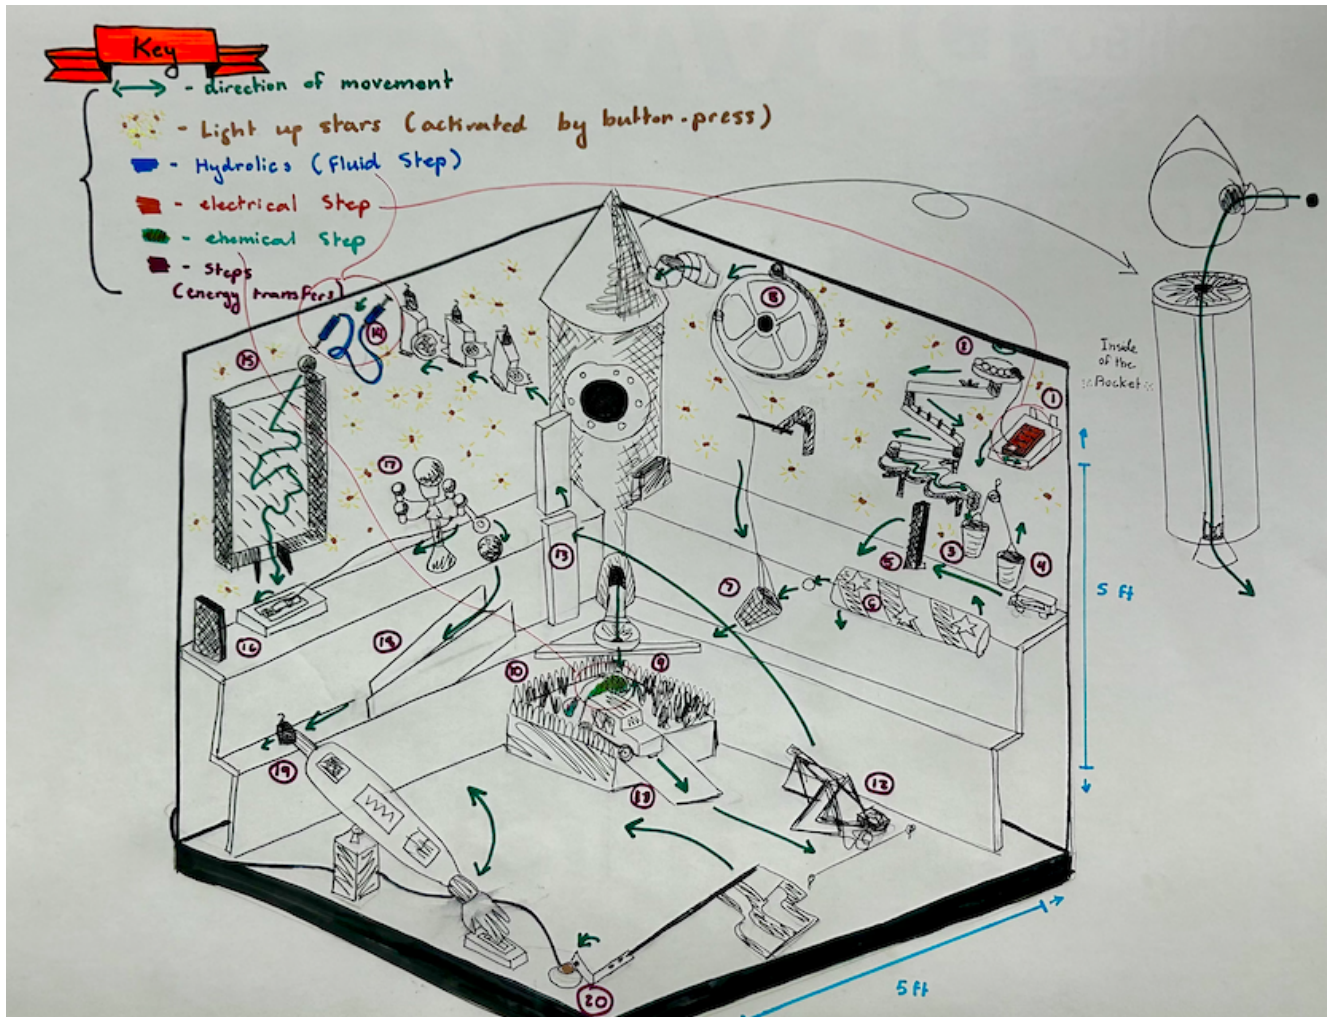 Key
- direction of movement
- Light up stars (activated by button.press)
- Hydrolics (Fluid Step)
- electrical Step
- chemical Step
- Steps
(energy transfers)
Inside
of the
Rocket
8
1
14
15
17
13
5
3
4
7
6
16
18
10
9
5 ft
19
11
12
20
5 ft